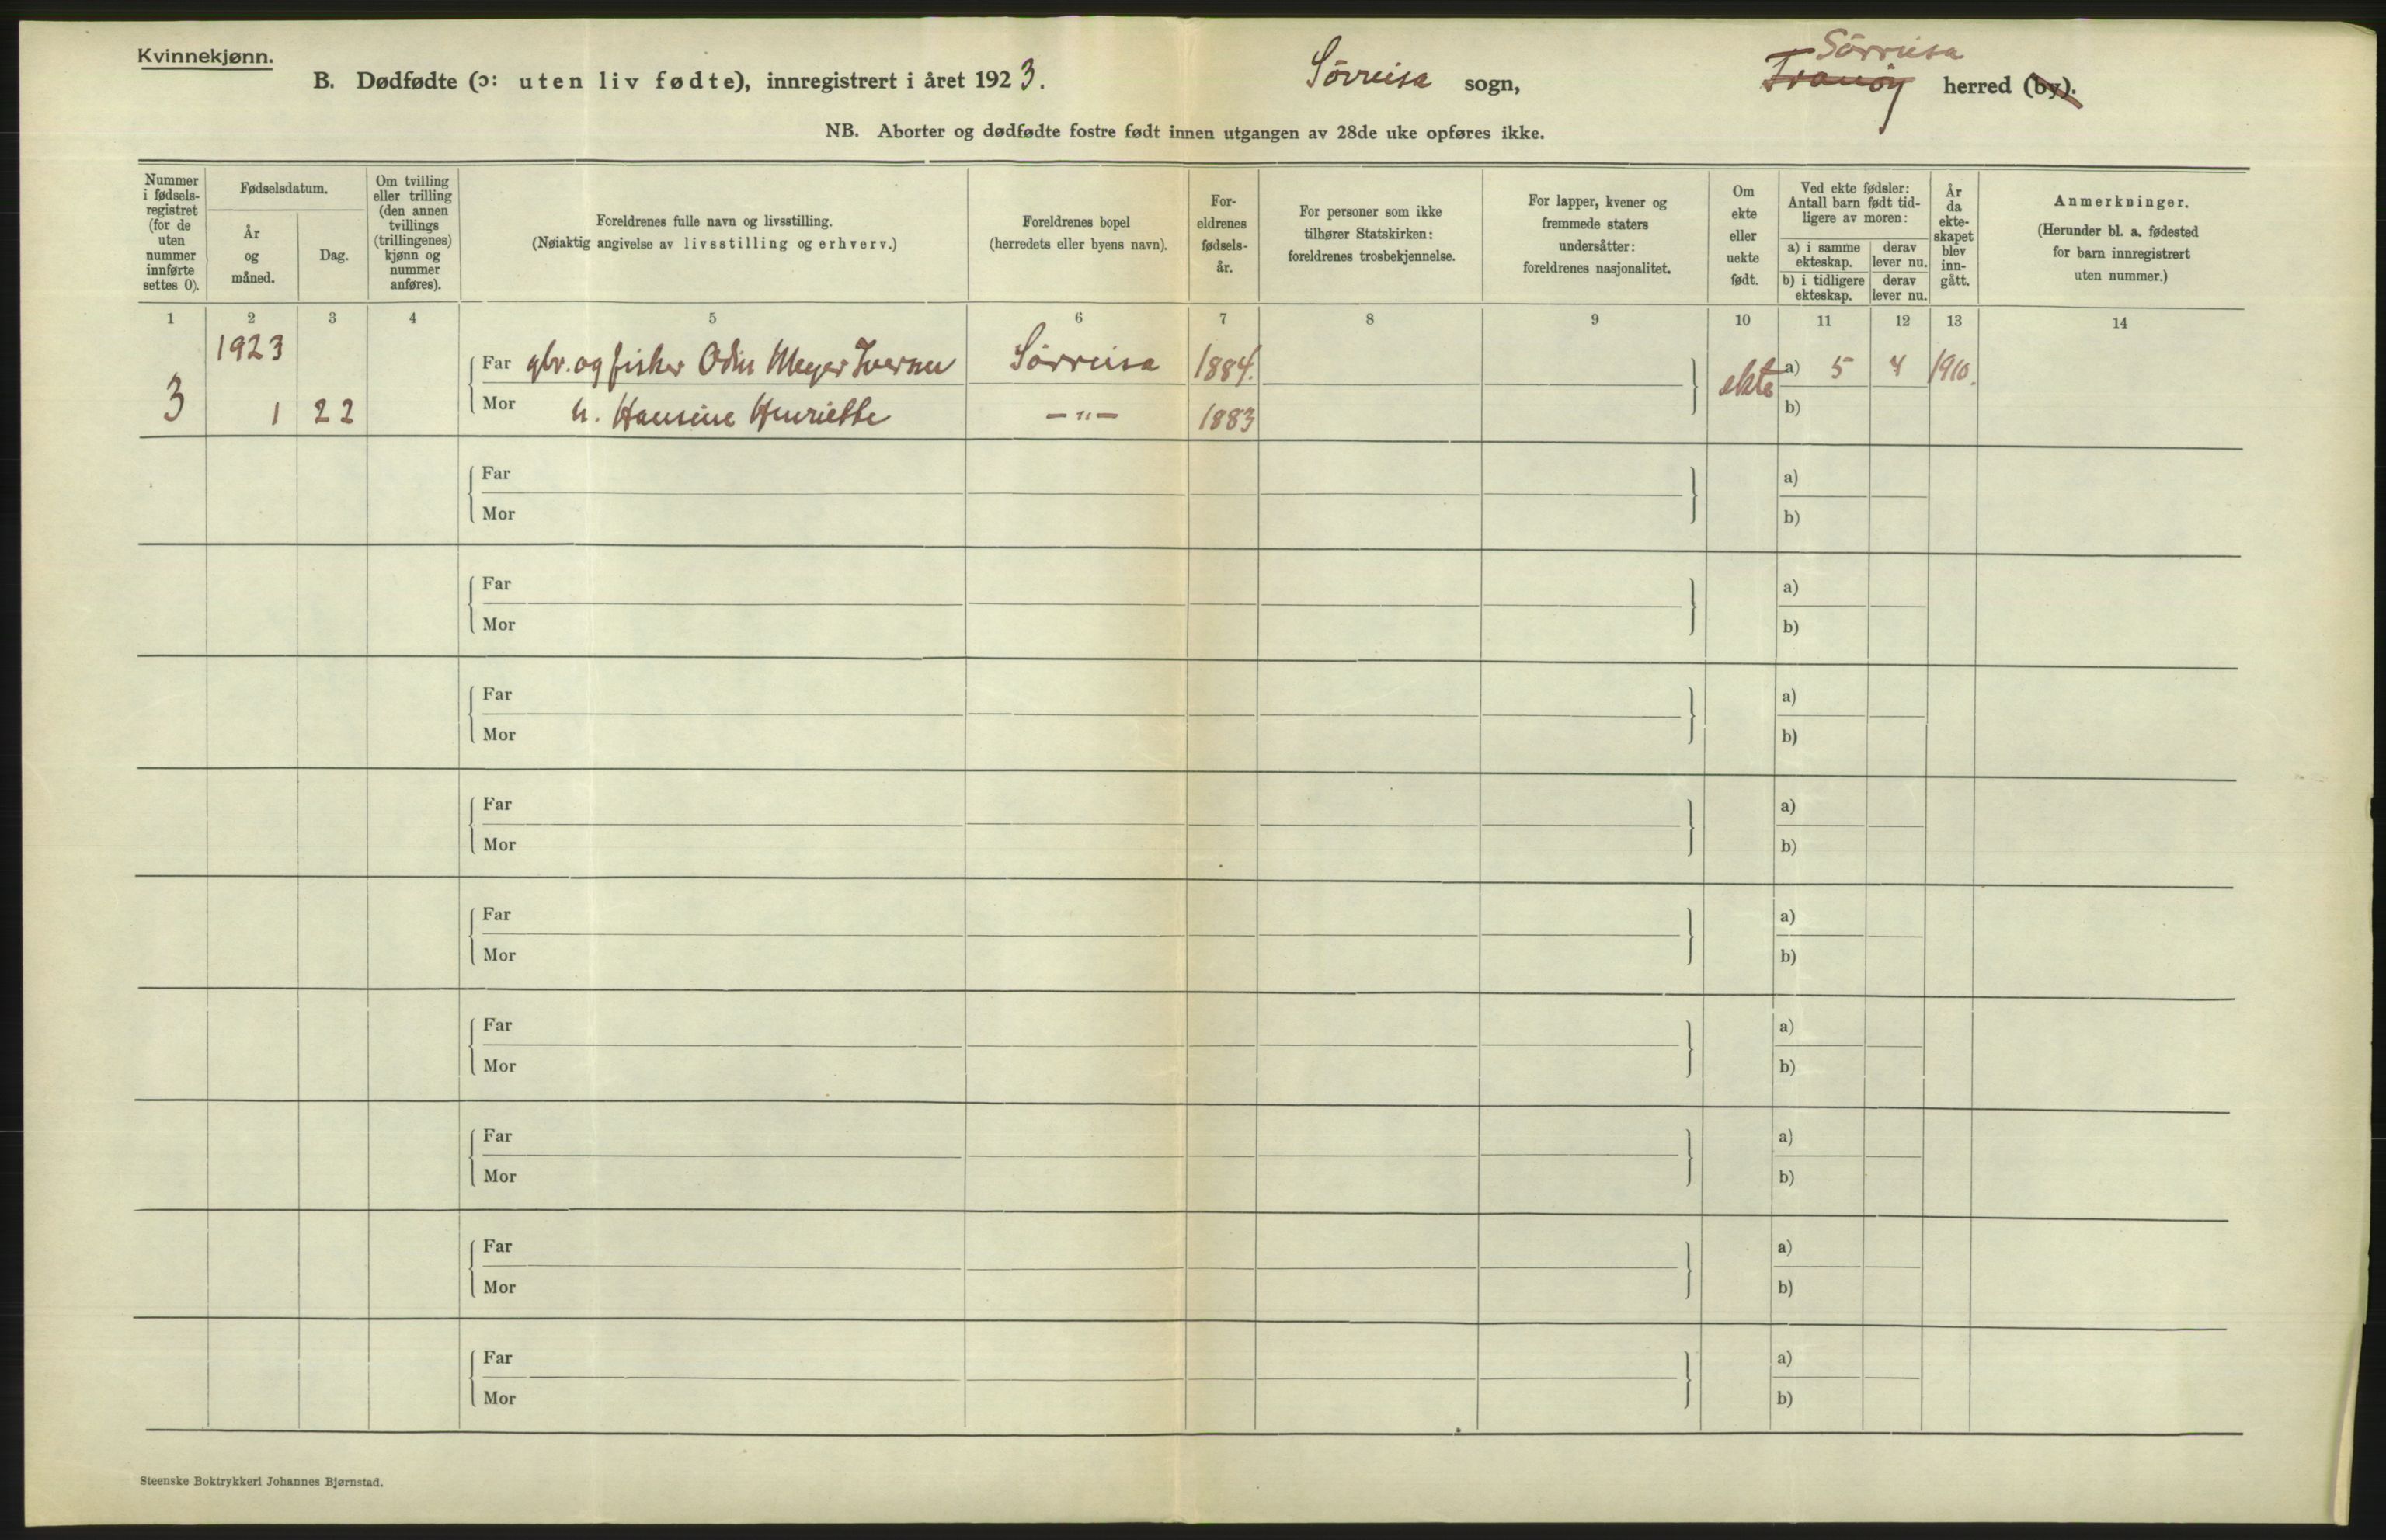 Kvinnekjønn.
B. Dødfødte (ɔ: uten liv fødte), innregistrert i året 1923. Sörreisa sogn, Sörreisa
Tranöy herred (by).
NB. Aborter og dødfødte fostre født innen utgangen av 28de uke opføres ikke.
Nummer i fødsels-registret (for de uten nummer innførte settes 0).
Fødselsdatum.
År og måned.
Dag.
Om tvilling eller trilling (den annen tvillings (trillingenes) kjønn og nummer anføres).
Foreldrenes fulle navn og livsstilling.
(Nøiaktig angivelse av livsstilling og erhverv.)
Foreldrenes bopel
(herredets eller byens navn).
For-eldrenes fødsels-år.
For personer som ikke tilhører Statskirken: foreldrenes trosbekjennelse.
For lapper, kvener og fremmede staters undersåtter: foreldrenes nasjonalitet.
Om ekte eller uekte født.
Ved ekte fødsler: Antall barn født tid-ligere av moren:
a) i samme ekteskap.
derav lever nu.
b) i tidligere ekteskap.
derav lever nu.
År da ekte-skapet blev inn-gått.
Anmerkninger.
(Herunder bl. a. fødested for barn innregistrert uten nummer.)
1 2 3 4 5 6 7 8 9 10 11 12 13 14
1923
Far gbr. og fisker Odin Meyer Iversen Sörreisa 1884. ekte a) 5 4 1910.
3 1 22 Mor h. Hansine Henriette —"— 1883 b)
Far a)
Mor b)
Far a)
Mor b)
Far a)
Mor b)
Far a)
Mor b)
Far a)
Mor b)
Far a)
Mor b)
Far a)
Mor b)
Far a)
Mor b)
Far a)
Mor b)
Steenske Boktrykkeri Johannes Bjørnstad.